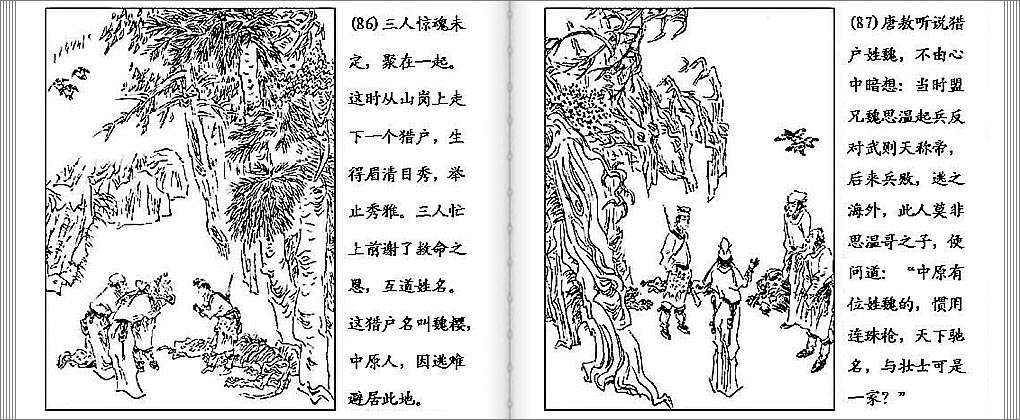 (86)三人惊魂未
定，聚在一起。
这时从山岗上走
下一个猎户，生
得眉清目秀，举
止秀雅。三人忙
上前谢了救命之
恩，互道姓名。
这猎户名叫魏樱，
中原人，因逃难
避居此地。
(87)唐敖听说猎
户姓魏，不由心
中暗想：当时盟
兄魏思温起兵反
对武则天称帝，
后来兵败，逃之
海外，此人莫非
思温哥之子，便
问道：“中原有
位姓魏的，惯用
连珠枪，天下驰
名，与壮士可是
一家？”